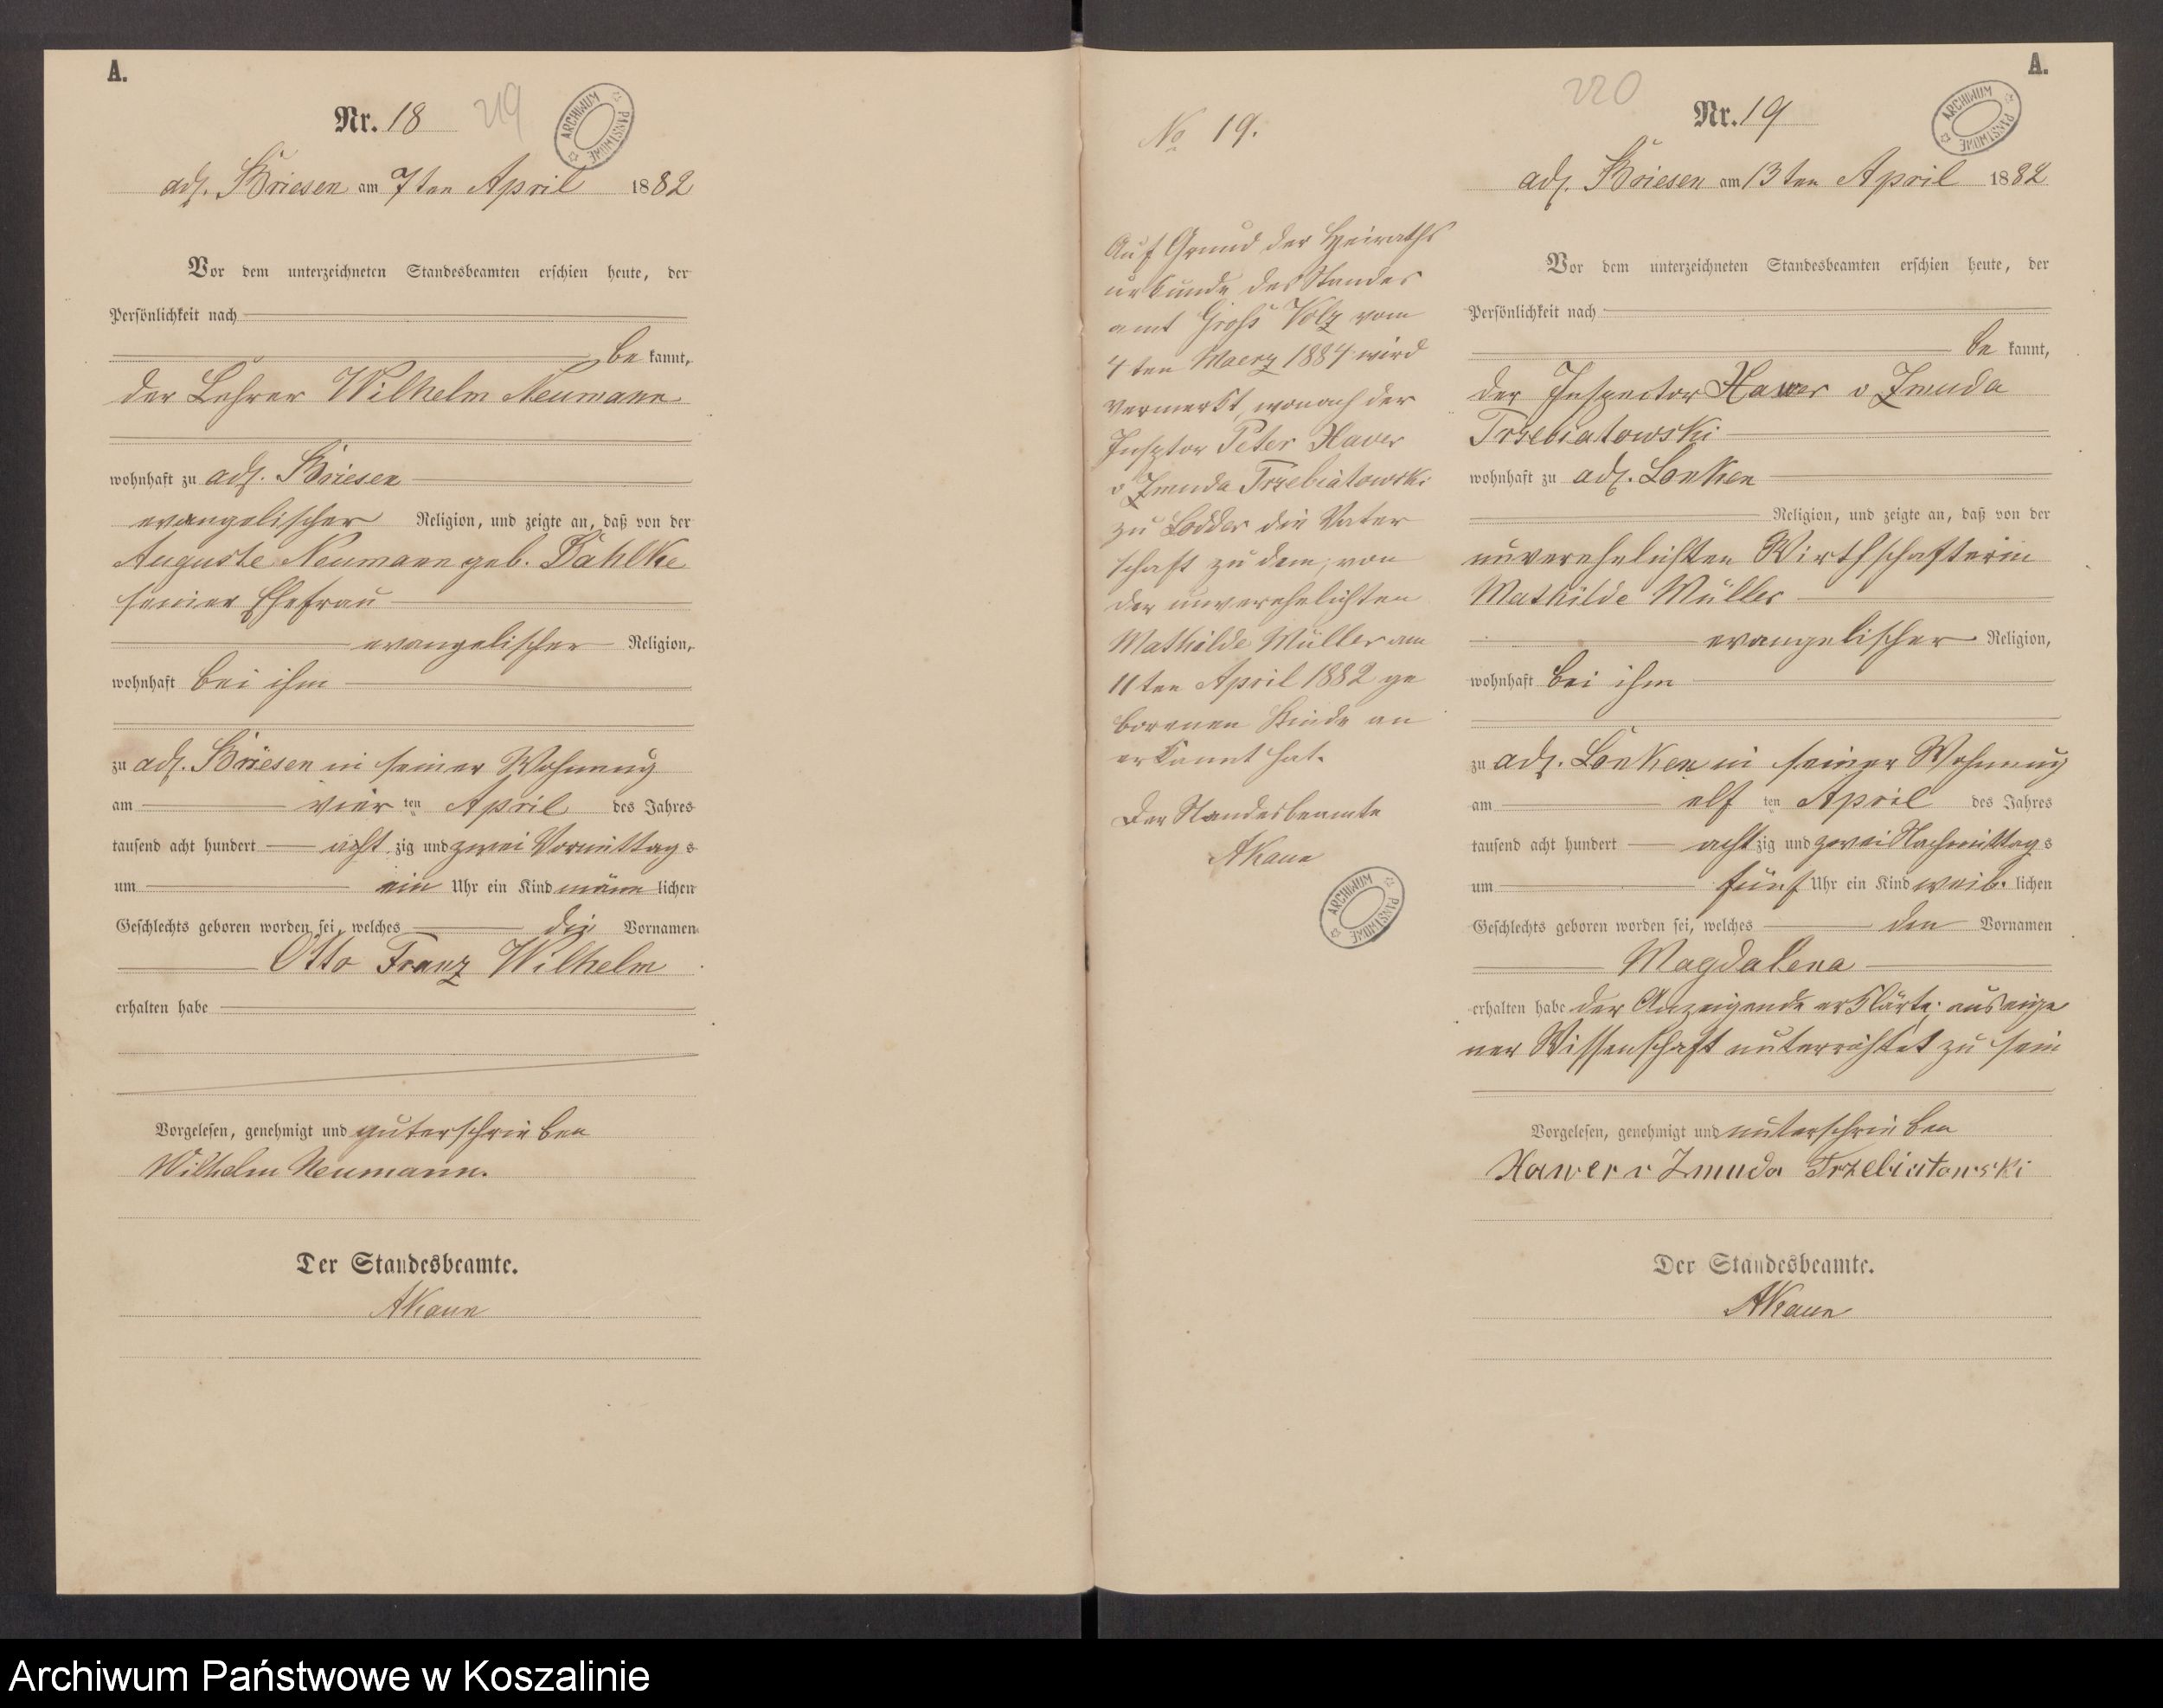 A.
Nr. 18
219
ARCHIWUM PAŃSTWOWE
adl. Briesen am 7ten April 1882
Vor dem unterzeichneten Standesbeamten erschien heute, der
Persönlichkeit nach
be kannt,
der Lehrer Wilhelm Neumann
wohnhaft zu adl. Briesen
evangelischer Religion, und zeigte an, daß von der
Auguste Neumann geb. Dahlke
seiner Ehefrau
evangelischer Religion,
wohnhaft bei ihm
zu adl. Briesen in seiner Wohnung
am vier ten April des Jahres
tausend acht hundert acht zig und zwei Vormittag s
um ein Uhr ein Kind männ lichen
Geschlechts geboren worden sei, welches die Vornamen
Otto Franz Wilhelm
erhalten habe
Vorgelesen, genehmigt und unterschrieben
Wilhelm Neumann.
Der Standesbeamte.
No 19.
Auf Grund der Heiraths
urkunde des Standes
amt Groß Volz vom
4ten Maerz 1884 wird
vermerkt, wonach der
Insptor Peter Xaver
v Zmuda Trzebiatowski
zu Lodder die Vater
schaft zu dem, von
der unverehelichten
Mathilde Müller am
11ten April 1882 ge
borenen Kinde an
erkannt hat.
Der Standesbeamte
ARCHIWUM PAŃSTWOWE
A.
220
Nr. 19
ARCHIWUM PAŃSTWOWE
adl. Briesen am 13ten April 1882
Vor dem unterzeichneten Standesbeamten erschien heute, der
Persönlichkeit nach
be kannt,
der Inspector Xawer v Zmuda
Trzebiatowski
wohnhaft zu adl. Lonken
Religion, und zeigte an, daß von der
unverehelichten Wirthschafterin
Mathilde Müller
evangelischer Religion,
wohnhaft bei ihm
zu adl. Lonken in seiner Wohnung
am elf ten April des Jahres
tausend acht hundert acht zig und zwei Nachmittag s
um fünf Uhr ein Kind weib. lichen
Geschlechts geboren worden sei, welches den Vornamen
Magdalena
erhalten habe der Anzeigende erklärte, aus eige
ner Wissenschaft unterrichtet zu sein
Vorgelesen, genehmigt und unterschrieben
Xawer v Zmuda Trzebiatowski
Der Standesbeamte.
Archiwum Państwowe w Koszalinie